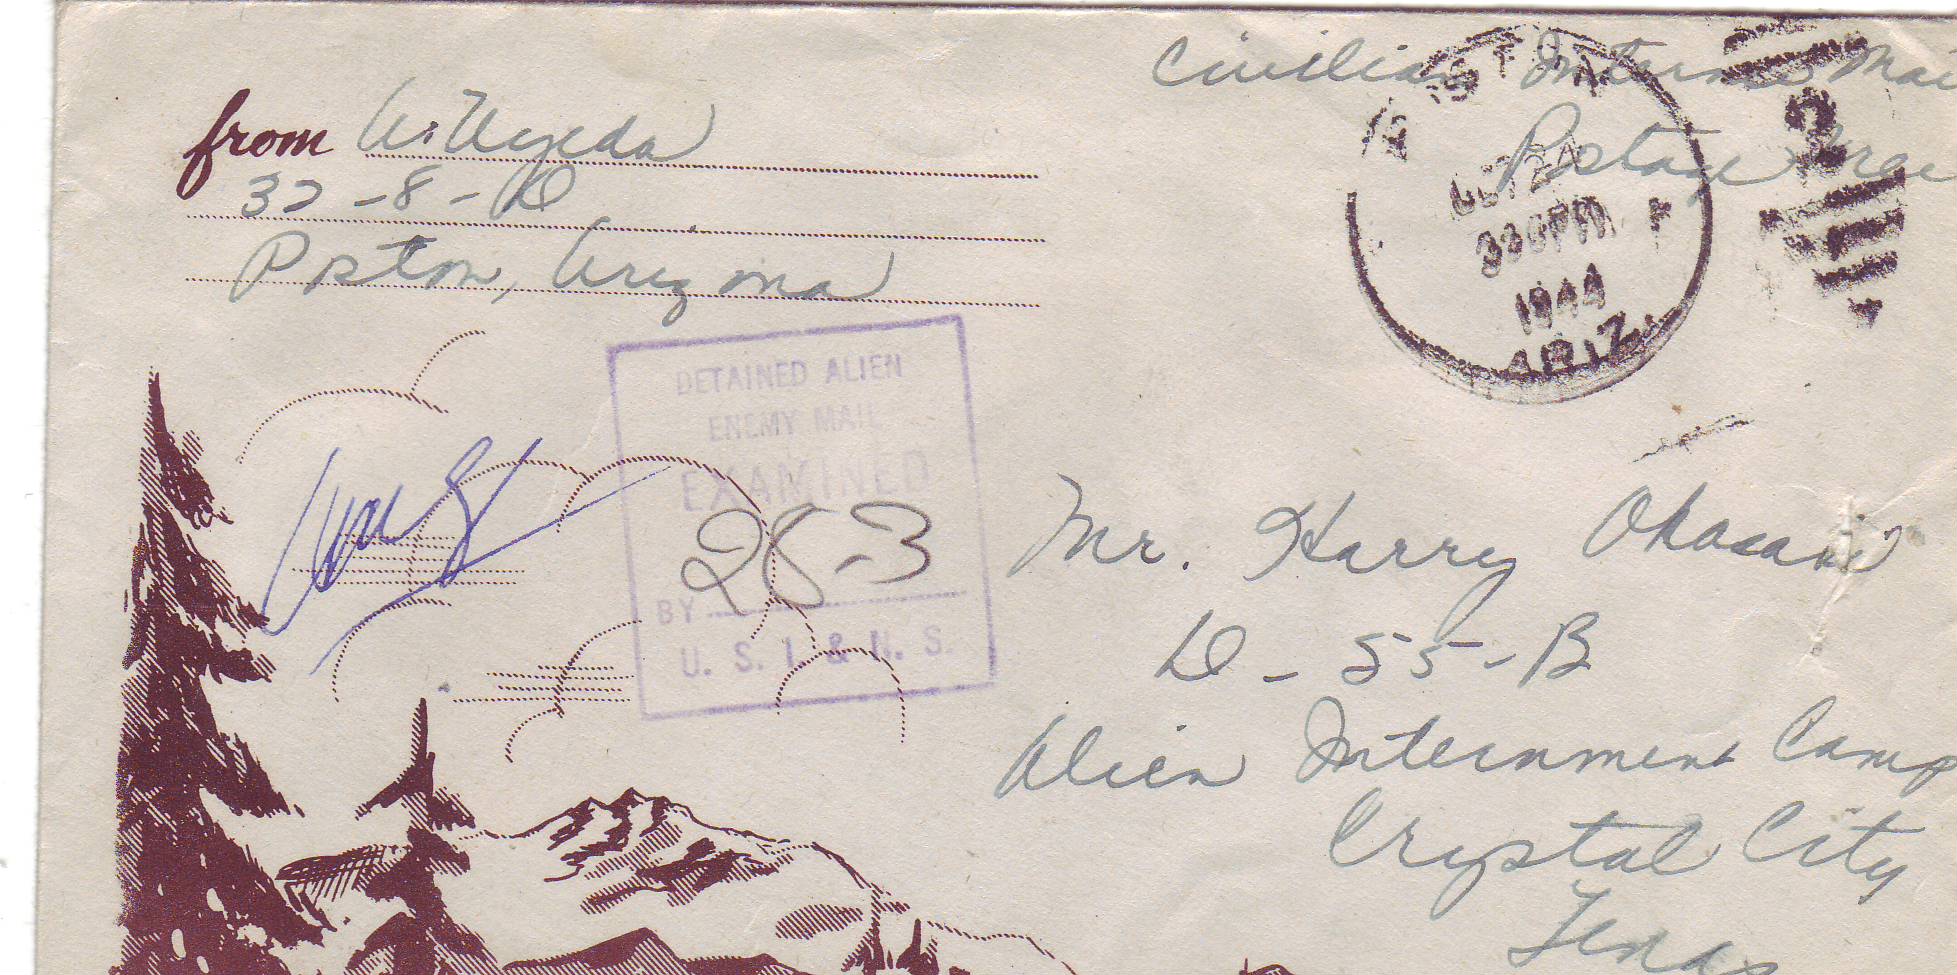 from A. Uyeda
37-8-D
Poston, Arizona
Civilian Internee Mai
Postage Free
POSTON
OCT 24
330PM
1944
ARIZ.
2
DETAINED ALIEN
ENEMY MAIL
EXAMINED
28-3
BY
U. S. I. & N. S.
Mr. Harry Okasaki
D-55-B
Alien Internment Camp
Crystal City
Texas